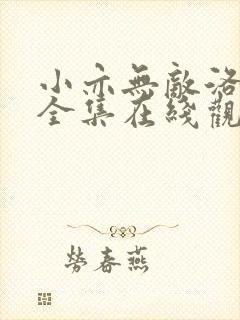 小亦無敵洛
全集在綫觀
勞春燕